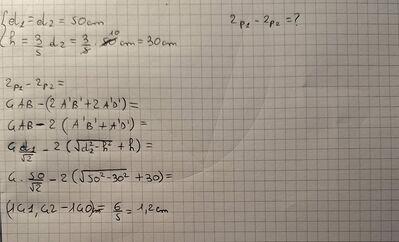 {d₁ = d₂ = 50cm
2p₁ - 2p₂ = ?
{h = 3/5 d₂ = 3/5 · 50 10 cm = 30cm
2p₁ - 2p₂ =
4AB - (2A'B' + 2A'D') =
4AB - 2(A'B' + A'D') =
4 d₁/√2 - 2(√(d₂² - h²) + h) =
4 · 50/√2 - 2(√(50² - 30²) + 30) =
(141,42 - 140) = 6/5 = 1,2cm